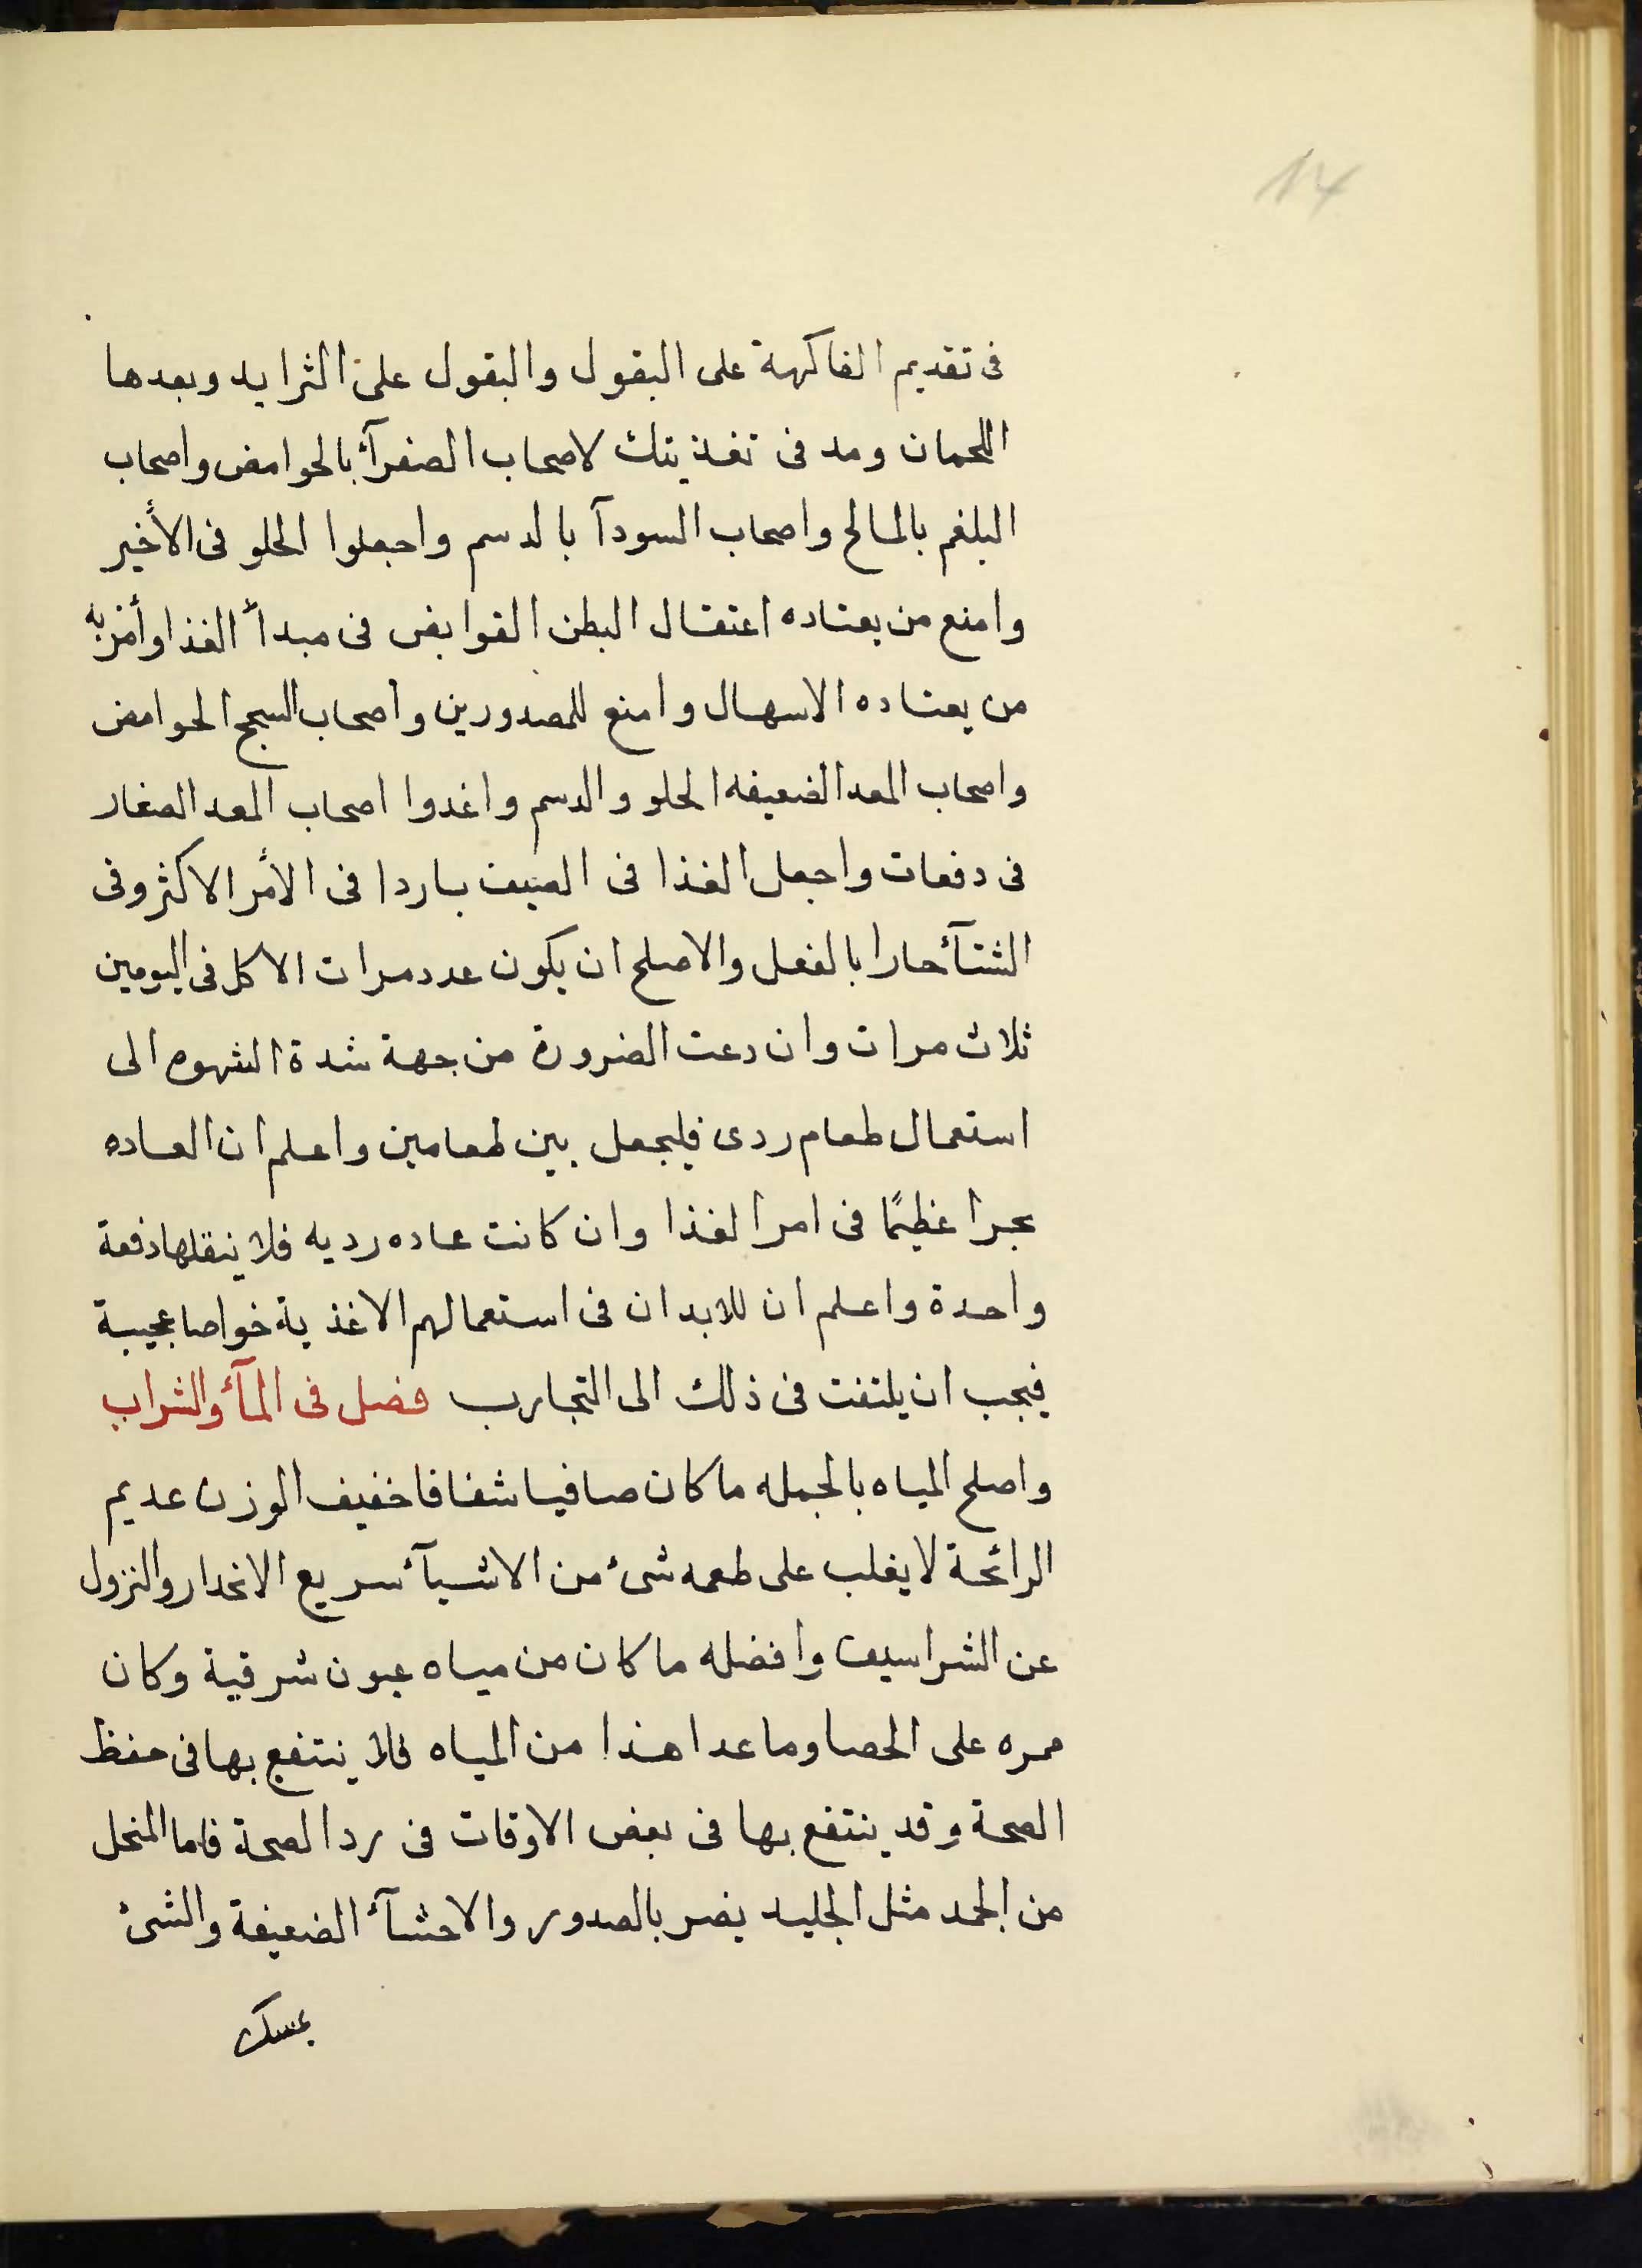 14
فى تقديم الفاكهة على البقول والبقول على الثرايد وبعدها
اللحمان ومد فى تغذيتك لاصحاب الصفرآئ بالحوامض واصحاب
البلغم بالمالح واصحاب السودآ بالدسم واجعلوا الحلو فى الأخير
وامنع من يعتاده اعتقال البطن القوابض فى مبدأ الغذا وأمر به
من يعتاده الاسهال وامنع للمصدورين واصحاب السجج الحوامض
واصحاب المعد الضعيفه الحلو والدسم واغدوا اصحاب المعد الصغار
فى دفعات واجعل الغذا فى الصيف باردا فى الأمر الاكثر وفى
الشتآئ حارا بالفعل والاصلح ان يكون عدد مرات الاكل فى اليومين
ثلاث مرات وان دعت الضرورة من جهة شدة الشهوه الى
استعمال طعام ردى فليجعل بين طعامين واعلم ان العاده
عظيمًا فى امر الغذا وان كانت عاده رديه فلا ينقلها دفعة
واحدة واعلم ان للابدان فى استعمالهم الاغذية خواصا عجيبة
فيجب ان يلتفت فى ذلك الى التجارب فصل فى المآئ والشراب
واصلح المياه بالجمله ما كان صافيا شفافا خفيف الوزن عديم
الرائحة لا يغلب على طعمه شئ من الاشيآئ سريع الانحدار والنزول
عن الشراسيف وافضله ما كان من مياه عيون شرقية وكان
ممره على الحصا وما عدا هذا من المياه فلا ينتفع بها فى حفظ
الصحة وقد ينتفع بها فى بعض الاوقات فى رد الصحة فاما المنحل
من الجمد مثل الجليد يضر بالصدور والاحشآئ الضعيفة والشئ